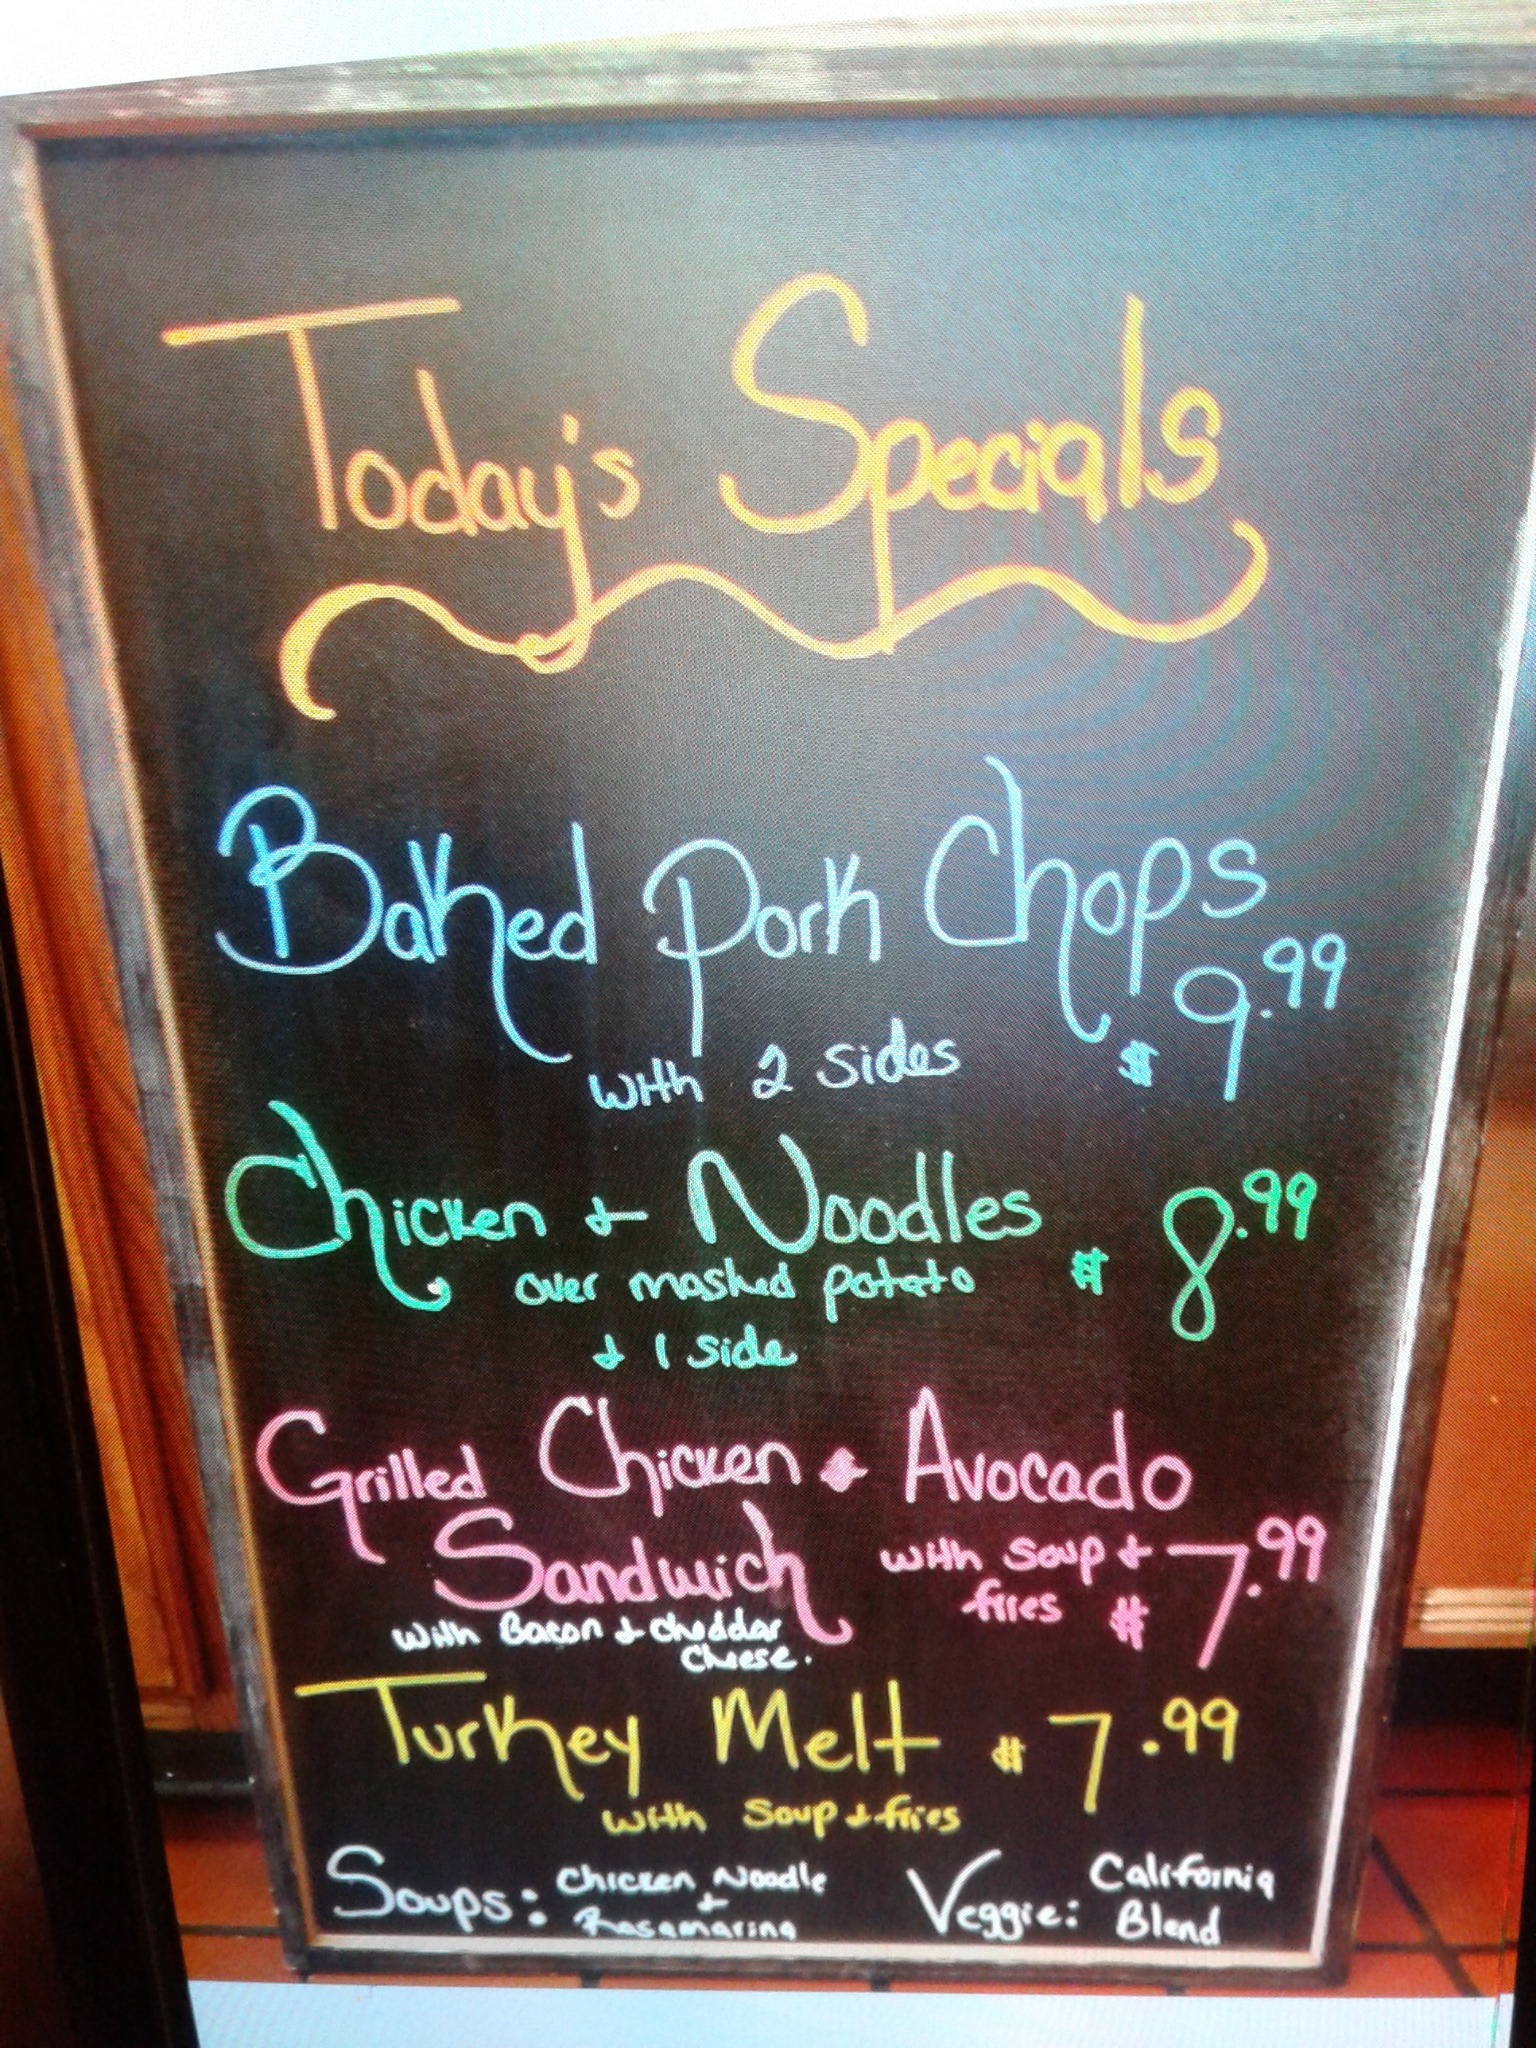 Today's Specials
Baked Pork Chops
with 2 sides $9.99
Chicken + Noodles
over mashed potato $8.99
+ 1 side
Grilled Chicken + Avocado
Sandwich with soup + fries $7.99
with Bacon + cheddar cheese.
Turkey Melt $7.99
with soup + fries
Soups: Chicken Noodle + Rosamarina
Veggie: California Blend